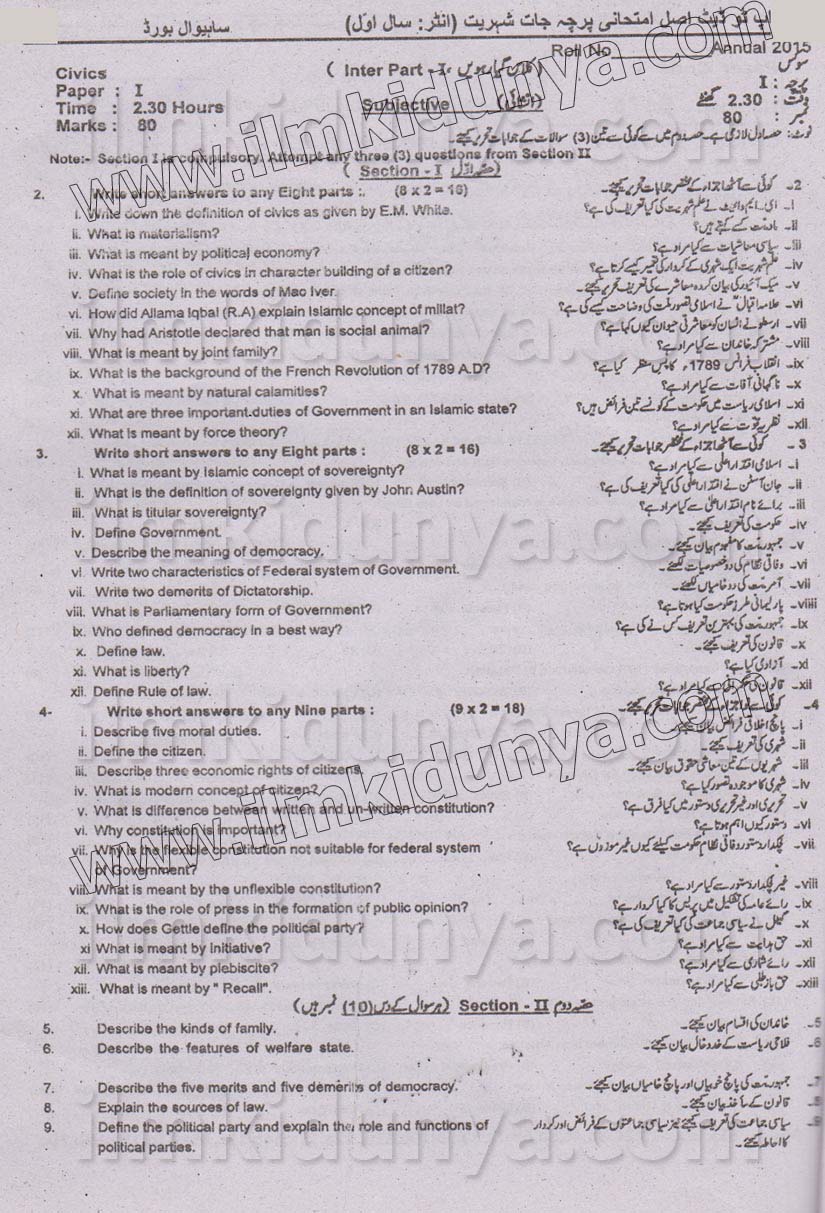 اپ ٹو ڈیٹ اصل امتحانی پرچہ جات شہریت (انٹر: سال اوّل) ساہیوال بورڈ
Roll No Annual 2015
Civics ( Inter Part - I، کلاس گیارہویں ) سوکس
Paper : I پرچہ : I
Time : 2.30 Hours Subjective (انشائی) وقت : 2.30 گھنٹے
Marks : 80 نمبر : 80
نوٹ:- حصہ اول لازمی ہے۔ حصہ دوم میں سے کوئی سے تین (3) سوالات کے جوابات تحریر کیجئے۔
Note:- Section I is compulsory. Attempt any three (3) questions from Section II
( Section - I حصہ اوّل )
2. Write short answers to any Eight parts :. (8 x 2 = 16) 2- کوئی سے آٹھ اجزاء کے مختصر جوابات تحریر کیجئے۔
i. Write down the definition of civics as given by E.M. White. i- ای۔ ایم وائیٹ نے علم شہریت کی کیا تعریف کی ہے؟
ii. What is materialism? ii- مادیت کسے کہتے ہیں؟
iii. What is meant by political economy? iii- سیاسی معاشیات سے کیا مراد ہے؟
iv. What is the role of civics in character building of a citizen? iv- علم شہریت ایک شہری کے کردار کی تعمیر کیسے کرتا ہے؟
v. Define society in the words of Mac Iver. v- میک آئیور کی بیان کردہ معاشرے کی تعریف تحریر کیجئے۔
vi. How did Allama Iqbal (R.A) explain Islamic concept of millat? vi- علامہ اقبالؒ نے اسلامی تصور ملت کی وضاحت کیسے کی ہے؟
vii. Why had Aristotle declared that man is social animal? vii- ارسطو نے انسان کو معاشرتی حیوان کیوں کہا ہے؟
viii. What is meant by joint family? viii- مشترکہ خاندان سے کیا مراد ہے؟
ix. What is the background of the French Revolution of 1789 A.D? ix- انقلاب فرانس 1789ء کا پس منظر کیا ہے؟
x. What is meant by natural calamities? x- ناگہانی آفات سے کیا مراد ہے؟
xi. What are three important duties of Government in an Islamic state? xi- اسلامی ریاست میں حکومت کے کونسے تین فرائض ہیں؟
xii. What is meant by force theory? xii- نظریہ قوت سے کیا مراد ہے؟
3. Write short answers to any Eight parts : (8 x 2 = 16) 3- کوئی سے آٹھ اجزاء کے مختصر جوابات تحریر کیجئے۔
i. What is meant by Islamic concept of sovereignty? i- اسلامی اقتدار اعلیٰ سے کیا مراد ہے؟
ii. What is the definition of sovereignty given by John Austin? ii- جان آسٹن نے اقتدار اعلیٰ کی کیا تعریف کی ہے؟
iii. What is titular sovereignty? iii- برائے نام اقتدار اعلیٰ سے کیا مراد ہے؟
iv. Define Government. iv- حکومت کی تعریف کیجئے۔
v. Describe the meaning of democracy. v- جمہوریت کا مفہوم بیان کیجئے۔
vi. Write two characteristics of Federal system of Government. vi- وفاقی نظام کی دو خصوصیات لکھئے۔
vii. Write two demerits of Dictatorship. vii- آمریت کی دو خامیاں لکھئے۔
viii. What is Parliamentary form of Government? viii- پارلیمانی طرز حکومت کیا ہوتا ہے؟
ix. Who defined democracy in a best way? ix- جمہوریت کی بہترین تعریف کس نے کی ہے؟
x. Define law. x- قانون کی تعریف کیجئے۔
xi. What is liberty? xi- آزادی کیا ہے؟
xii. Define Rule of law. xii- قانون کی حکمرانی سے کیا مراد ہے؟
4- Write short answers to any Nine parts : (9 x 2 = 18) 4- کوئی سے نو اجزاء کے مختصر جوابات تحریر کیجئے۔
i. Describe five moral duties. i- پانچ اخلاقی فرائض بیان کیجئے۔
ii. Define the citizen. ii- شہری کی تعریف کیجئے۔
iii. Describe three economic rights of citizens. iii- شہریوں کے تین معاشی حقوق بیان کیجئے۔
iv. What is modern concept of citizen? iv- شہری کا موجودہ تصور کیا ہے؟
v. What is difference between written and un-written constitution? v- تحریری اور غیر تحریری دستور میں کیا فرق ہے؟
vi. Why constitution is important? vi- دستور کیوں اہم ہوتا ہے؟
vii. Why is the flexible constitution not suitable for federal system vii- لچکدار دستور وفاقی نظام حکومت کیلئے کیوں غیر موزوں ہے؟
of Government?
viii. What is meant by the unflexible constitution? viii- غیر لچکدار دستور سے کیا مراد ہے؟
ix. What is the role of press in the formation of public opinion? ix- رائے عامہ کی تشکیل میں پریس کا کیا کردار ہے؟
x. How does Gettle define the political party? x- گیٹل نے سیاسی جماعت کی کیا تعریف کی ہے؟
xi What is meant by Initiative? xi- حق ہدایت سے کیا مراد ہے؟
xii. What is meant by plebiscite? xii- رائے شماری سے کیا مراد ہے؟
xiii. What is meant by " Recall". xiii- حق باز طلبی سے کیا مراد ہے؟
حصہ دوم Section - II (ہر سوال کے دس (10) نمبر ہیں)
5. Describe the kinds of family. 5- خاندان کی اقسام بیان کیجئے۔
6. Describe the features of welfare state. 6- فلاحی ریاست کے خدوخال بیان کیجئے۔
7. Describe the five merits and five demerits of democracy. 7- جمہوریت کی پانچ خوبیاں اور پانچ خامیاں بیان کیجئے۔
8. Explain the sources of law. 8- قانون کے ماخذ بیان کیجئے۔
9. Define the political party and explain the role and functions of 9- سیاسی جماعت کی تعریف کیجئے نیز سیاسی جماعتوں کے فرائض اور کردار
political parties. کا احاطہ کیجئے۔
www.ilmkidunya.com
www.ilmkidunya.com
ilmkidunya.com
ilmkidunya.com
ilmkidunya.com
ilmkidunya.com
ilmkidunya.com